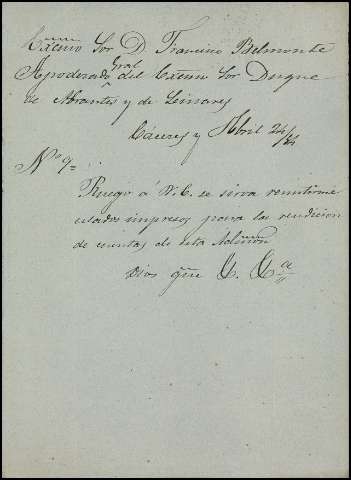 Excmo Sor D Francisco Belmonte
Apoderado Gral del Excmo Sor Duque
de Abrantes y de Linares
Cáceres y Abril 24/81
Nº 9=
Ruego á V.E. se sirva remitirme
estados impresos para la rendicion
de cuentas de esta Admon
Dios gue V. Ea